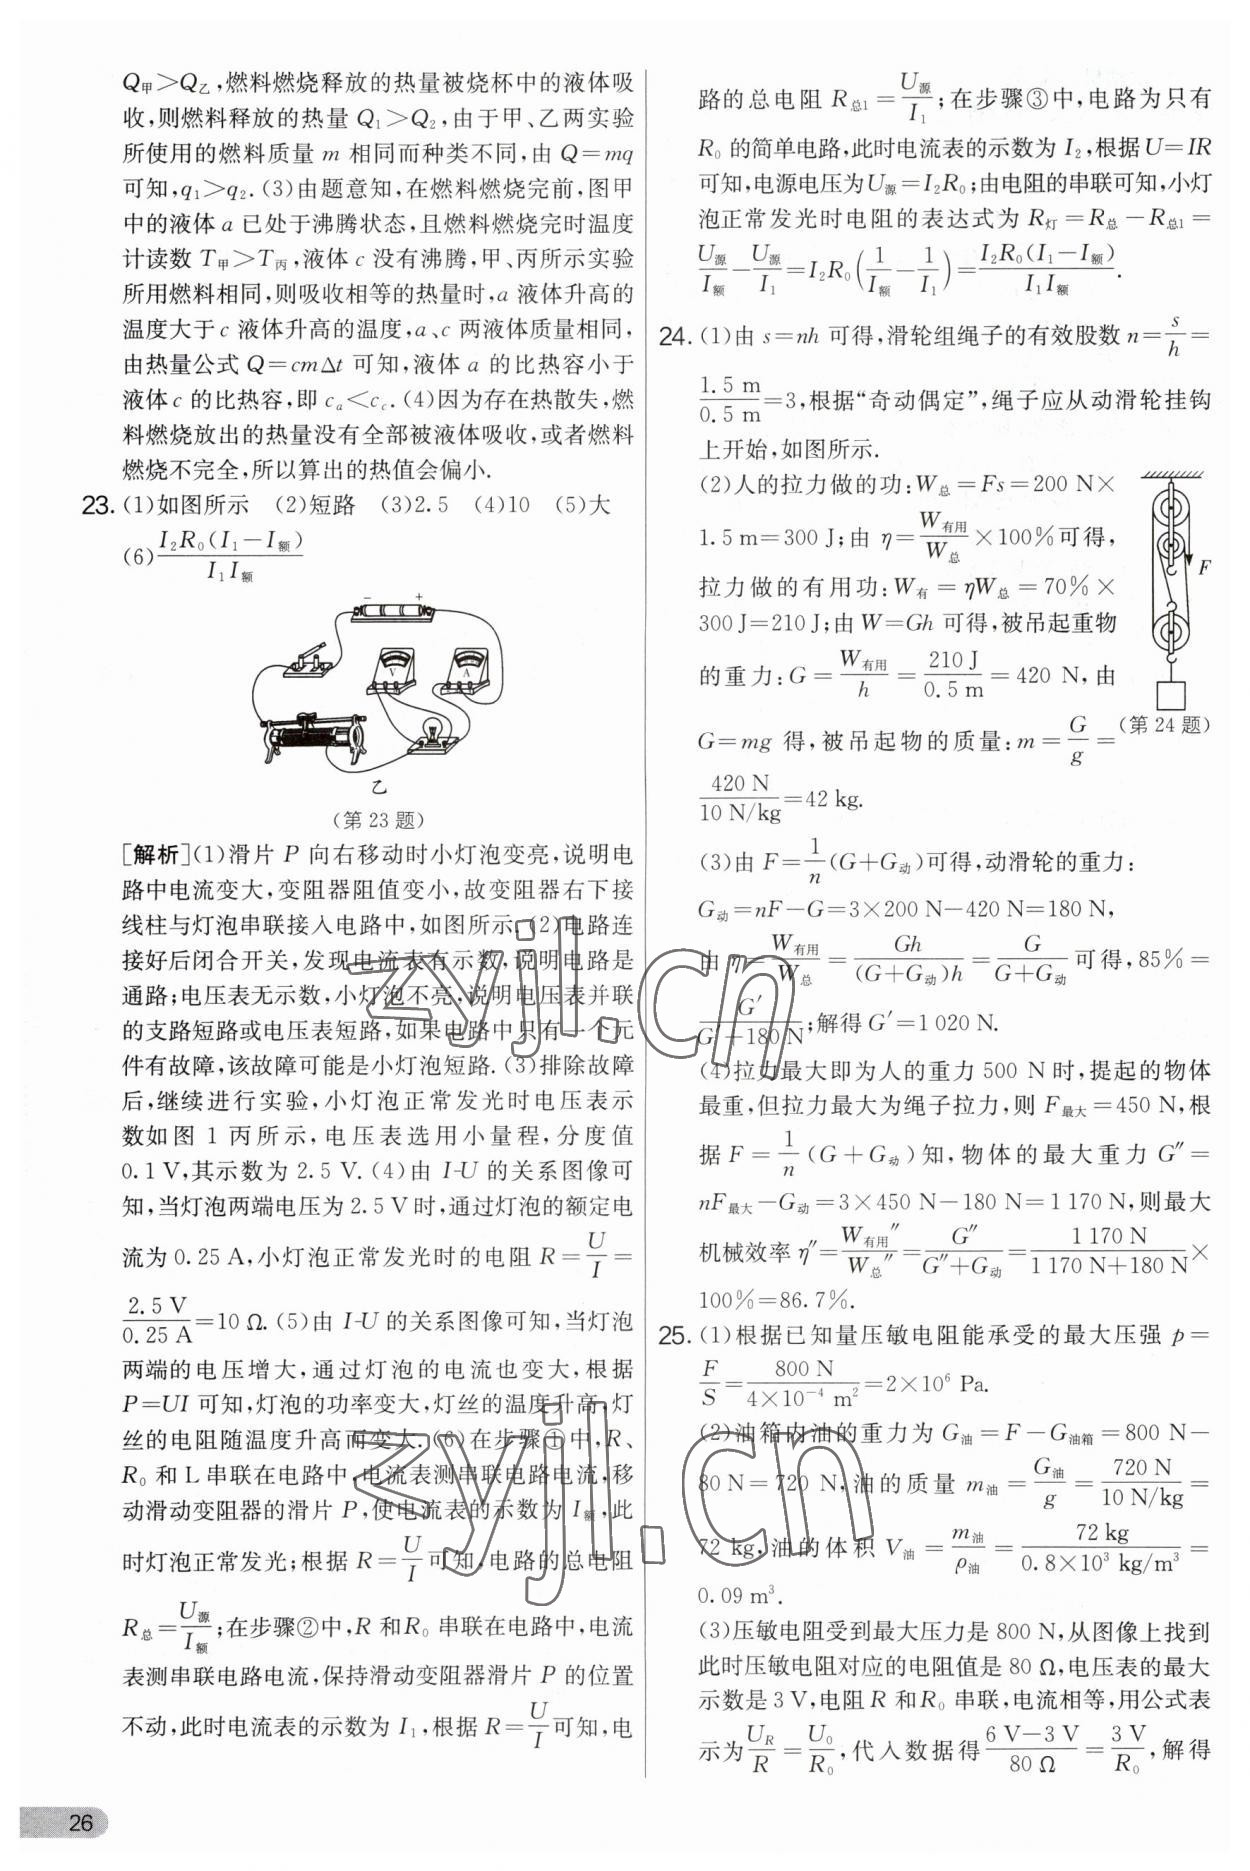 Q甲＞Q乙,燃料燃烧释放的热量被烧杯中的液体吸
收,则燃料释放的热量 Q₁＞Q₂,由于甲、乙两实验
所使用的燃料质量 m 相同而种类不同,由 Q=mq
可知,q₁＞q₂.(3)由题意知,在燃料燃烧完前,图甲
中的液体 a 已处于沸腾状态,且燃料燃烧完时温度
计读数 T甲＞T丙,液体 c 没有沸腾,甲、丙所示实验
所用燃料相同,则吸收相等的热量时,a 液体升高的
温度大于 c 液体升高的温度,a、c 两液体质量相同,
由热量公式 Q=cmΔt 可知,液体 a 的比热容小于
液体 c 的比热容,即 cₐ＜c_c.(4)因为存在热散失,燃
料燃烧放出的热量没有全部被液体吸收,或者燃料
燃烧不完全,所以算出的热值会偏小.
23.(1)如图所示 (2)短路 (3)2.5 (4)10 (5)大
(6) I₂R₀(I₁-I额)/I₁I额
- +
V
A
乙
(第23题)
[解析](1)滑片 P 向右移动时小灯泡变亮,说明电
路中电流变大,变阻器阻值变小,故变阻器右下接
线柱与灯泡串联接入电路中,如图所示.(2)电路连
接好后闭合开关,发现电流表有示数,说明电路是
通路;电压表无示数,小灯泡不亮,说明电压表并联
的支路短路或电压表短路,如果电路中只有一个元
件有故障,该故障可能是小灯泡短路.(3)排除故障
后,继续进行实验,小灯泡正常发光时电压表示
数如图 1 丙所示,电压表选用小量程,分度值
0.1 V,其示数为 2.5 V.(4)由 I-U 的关系图像可
知,当灯泡两端电压为 2.5 V 时,通过灯泡的额定电
流为 0.25 A,小灯泡正常发光时的电阻 R=U/I=
2.5 V/0.25 A=10 Ω.(5)由 I-U 的关系图像可知,当灯泡
两端的电压增大,通过灯泡的电流也变大,根据
P=UI 可知,灯泡的功率变大,灯丝的温度升高,灯
丝的电阻随温度升高而变大.(6)在步骤①中,R、
R₀ 和 L 串联在电路中,电流表测串联电路电流,移
动滑动变阻器的滑片 P,使电流表的示数为 I额,此
时灯泡正常发光;根据 R=U/I可知,电路的总电阻
R总=U源/I额;在步骤②中,R 和 R₀ 串联在电路中,电流
表测串联电路电流,保持滑动变阻器滑片 P 的位置
不动,此时电流表的示数为 I₁,根据 R=U/I可知,电
26
路的总电阻 R总1=U源/I₁;在步骤③中,电路为只有
R₀ 的简单电路,此时电流表的示数为 I₂,根据 U=IR
可知,电源电压为 U源=I₂R₀;由电阻的串联可知,小灯
泡正常发光时电阻的表达式为 R灯=R总-R总1=
U源/I额-U源/I₁=I₂R₀(1/I额-1/I₁)=I₂R₀(I₁-I额)/I₁I额.
24.(1)由 s=nh 可得,滑轮组绳子的有效股数 n=s/h=
1.5 m/0.5 m=3,根据“奇动偶定”,绳子应从动滑轮挂钩
上开始,如图所示.
(2)人的拉力做的功:W总=Fs=200 N×
1.5 m=300 J;由 η=W有用/W总×100%可得,
拉力做的有用功:W有=ηW总=70%×
300 J=210 J;由 W=Gh 可得,被吊起重物
的重力:G=W有用/h=210 J/0.5 m=420 N,由
G=mg 得,被吊起物的质量:m=G/g=
420 N/10 N/kg=42 kg.
F
(第24题)
(3)由 F=1/n(G+G动)可得,动滑轮的重力:
G动=nF-G=3×200 N-420 N=180 N,
由 η=W有用/W总=Gh/(G+G动)h=G/G+G动 可得,85%=
G′/G′+180 N;解得 G′=1 020 N.
(4)拉力最大即为人的重力 500 N 时,提起的物体
最重,但拉力最大为绳子拉力,则 F最大=450 N,根
据 F=1/n(G+G动)知,物体的最大重力 G″=
nF最大-G动=3×450 N-180 N=1 170 N,则最大
机械效率 η″=W有用″/W总″=G″/G″+G动=1 170 N/1 170 N+180 N×
100%=86.7%.
25.(1)根据已知量压敏电阻能承受的最大压强 p=
F/S=800 N/4×10⁻⁴ m²=2×10⁶ Pa.
(2)油箱内油的重力为 G油=F-G油箱=800 N-
80 N=720 N,油的质量 m油=G油/g=720 N/10 N/kg=
72 kg,油的体积 V油=m油/ρ油=72 kg/0.8×10³ kg/m³=
0.09 m³.
(3)压敏电阻受到最大压力是 800 N,从图像上找到
此时压敏电阻对应的电阻值是 80 Ω,电压表的最大
示数是 3 V,电阻 R 和 R₀ 串联,电流相等,用公式表
示为U_R/R=U₀/R₀,代入数据得6 V-3 V/80 Ω=3 V/R₀,解得
zyjl.cn
zyjl.cn